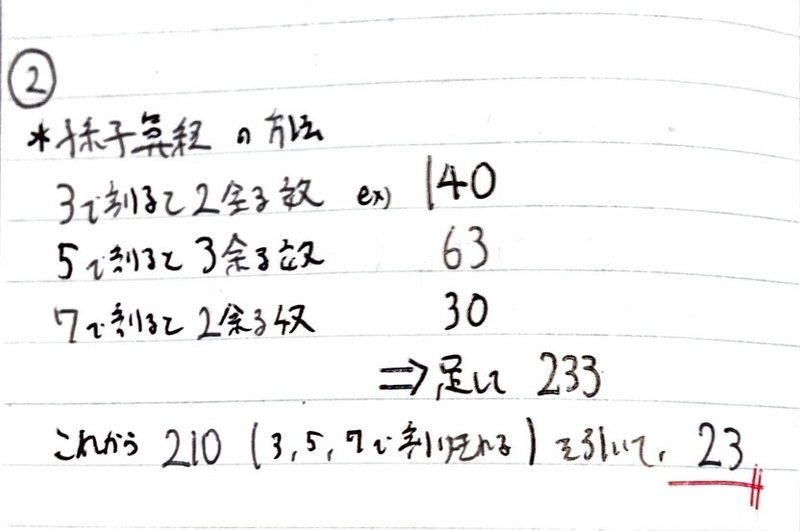 ②
*孫子算経の方法
3で割ると2余る数 ex) 140
5で割ると3余る数 63
7で割ると2余る数 30
⇒足して 233
これから 210 (3,5,7で割りきれる)を引いて、23